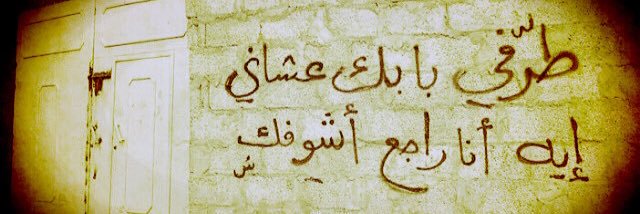 طرّفي بابك عشاني
إيه أنا راجع أشوفك